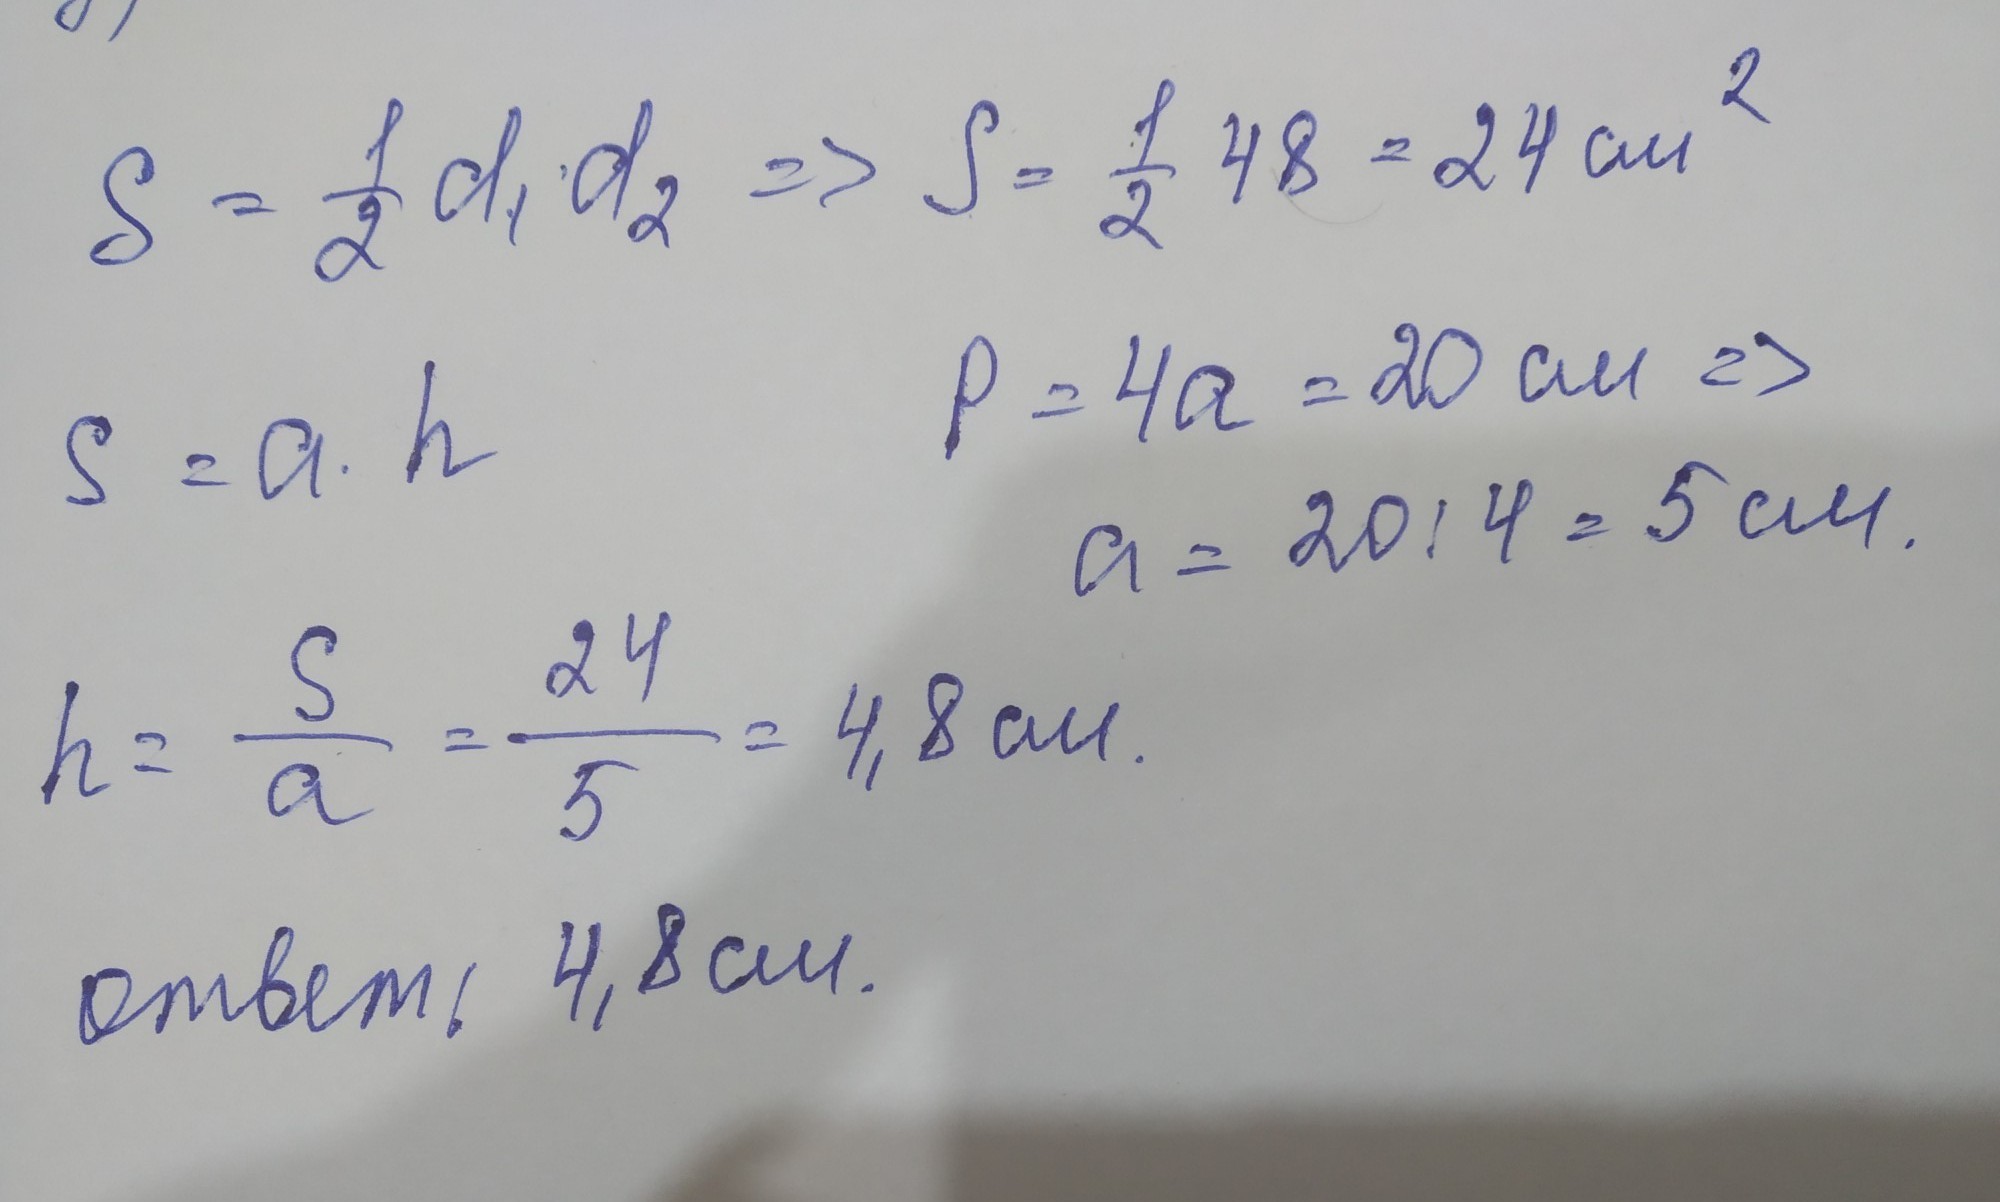 S = 1/2 d₁ · d₂ => S = 1/2 48 = 24 см²
S = a · h
P = 4a = 20 см =>
a = 20 : 4 = 5 см.
h = S/a = 24/5 = 4,8 см.
ответ: 4,8 см.